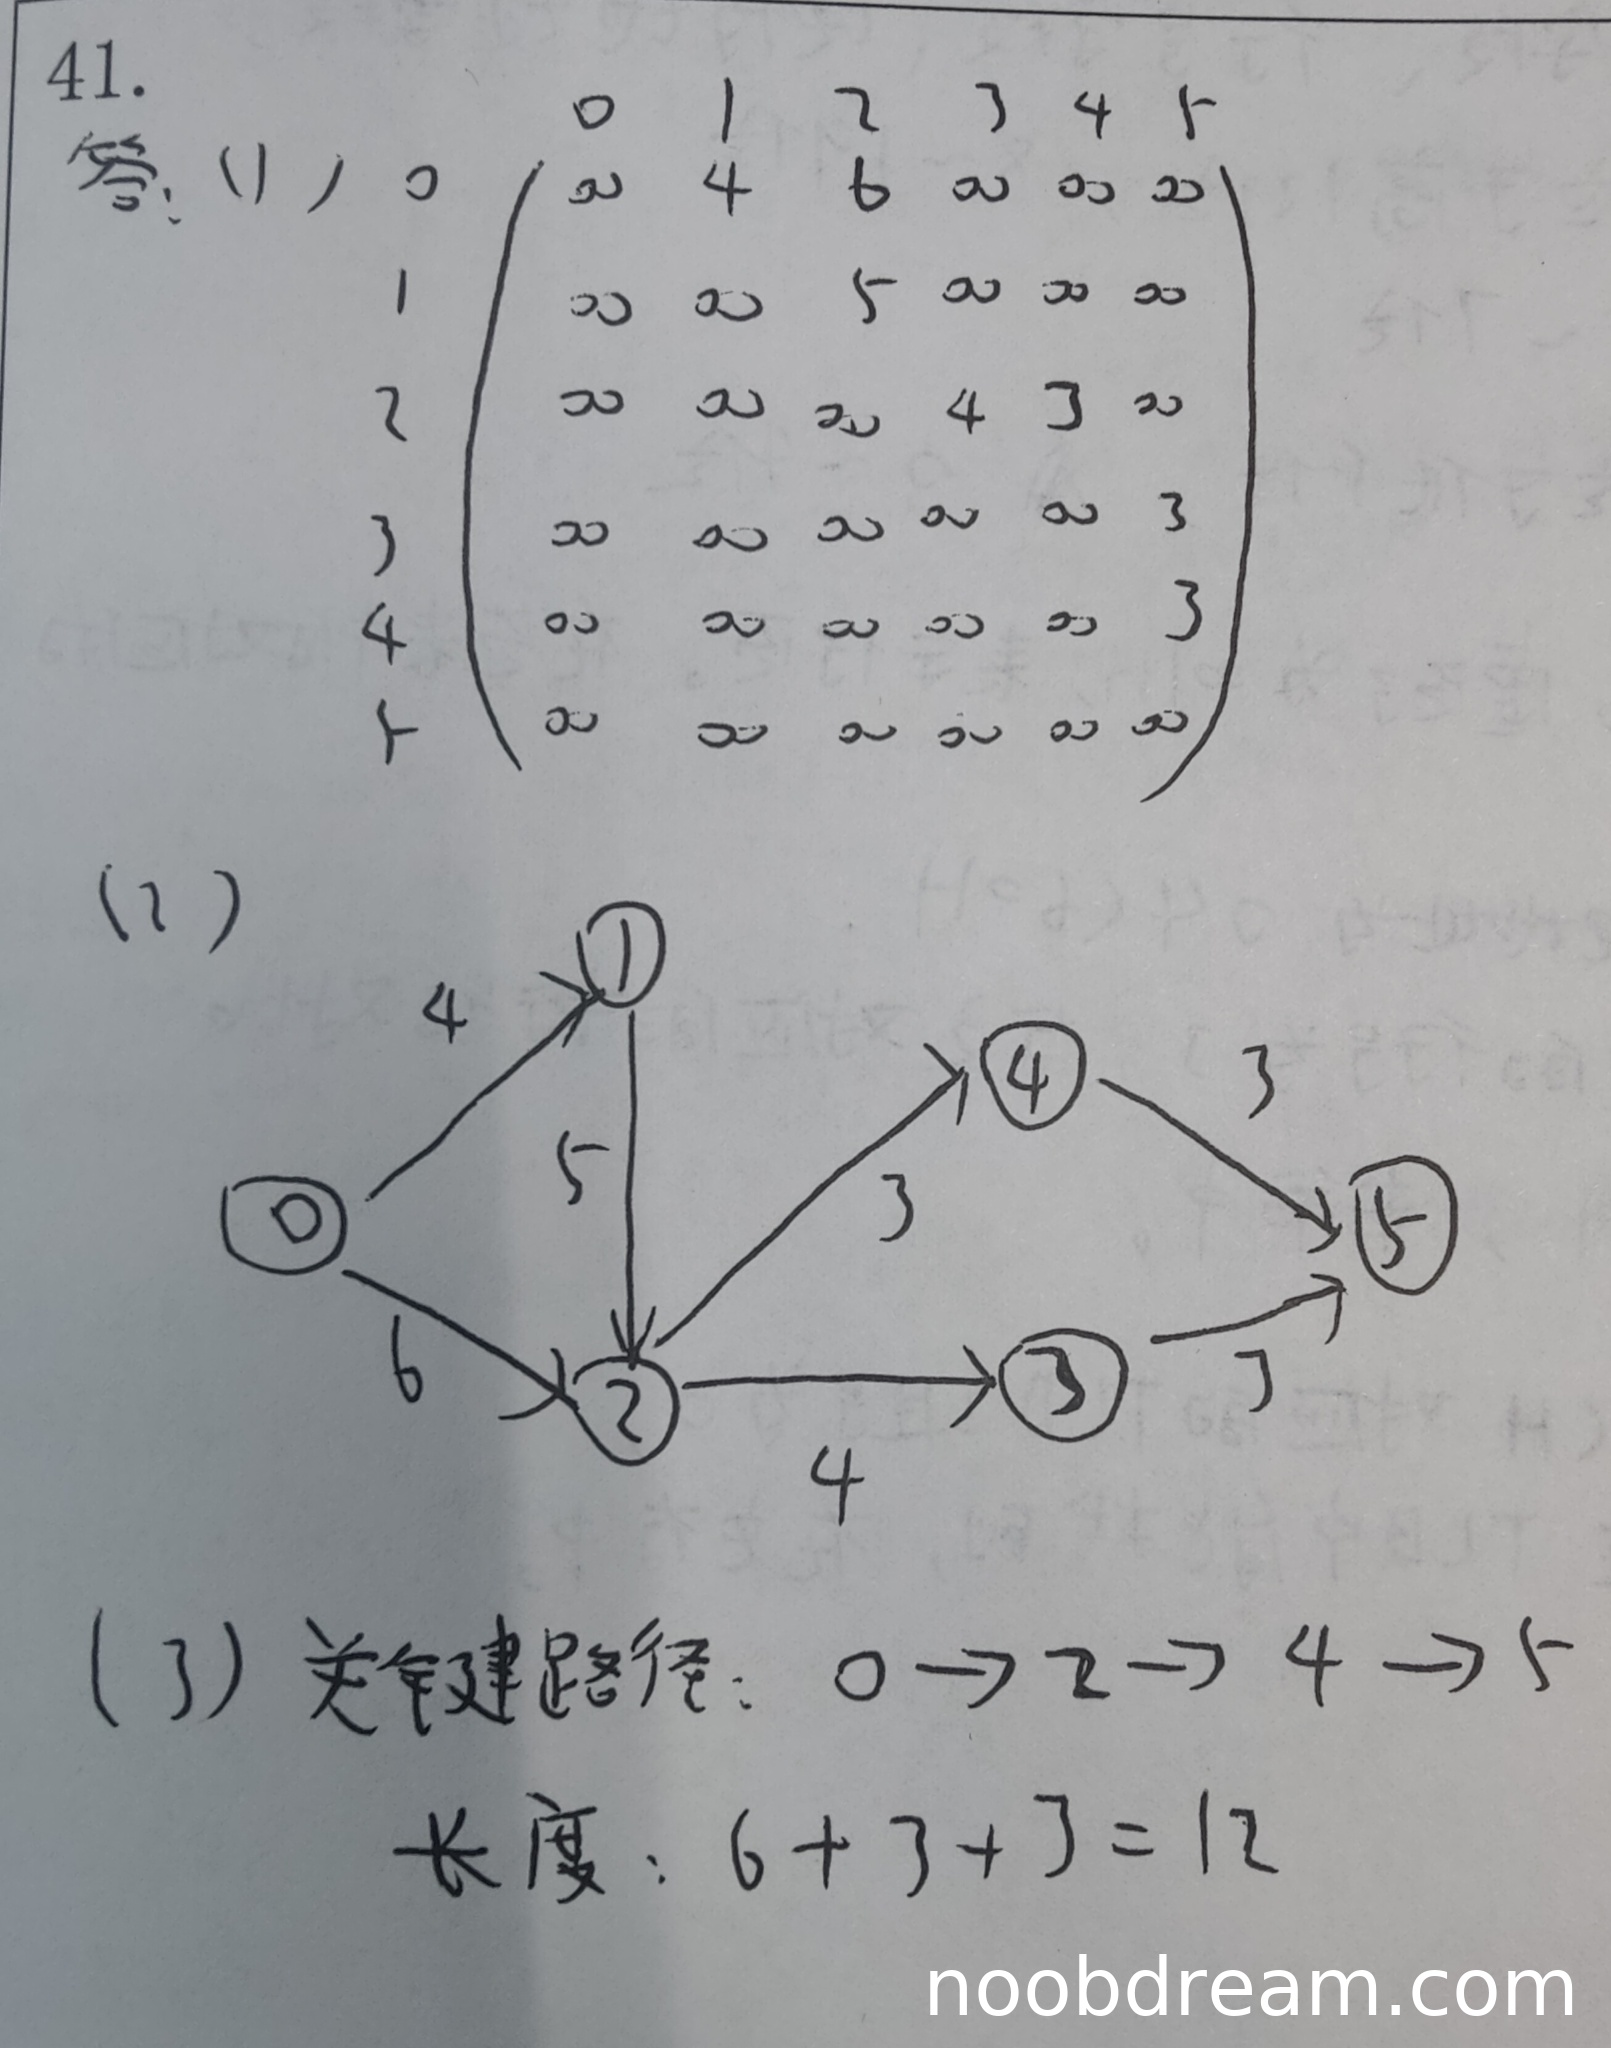 41.
0 1 2 3 4 5
答:(1) 0 ∞ 4 6 ∞ ∞ ∞
1 ∞ ∞ 5 ∞ ∞ ∞
2 ∞ ∞ ∞ 4 3 ∞
3 ∞ ∞ ∞ ∞ ∞ 3
4 ∞ ∞ ∞ ∞ ∞ 3
5 ∞ ∞ ∞ ∞ ∞ ∞
(2)
1
4
4
3
5
3
0
5
6
2
3
3
4
(3) 关键路径: 0→2→4→5
长度: 6+3+3=12
noobdream.com